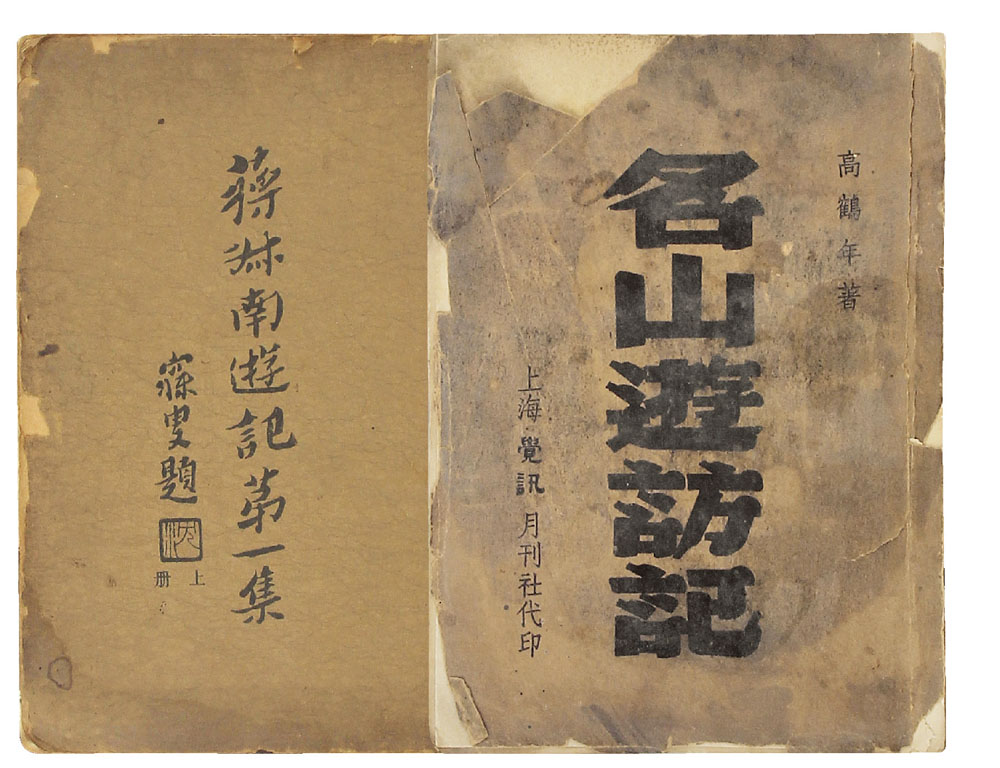 高鶴年著
名山遊訪記
上海覺訊月刊社代印
蔣叔南遊記第一集
寐叟題
上册